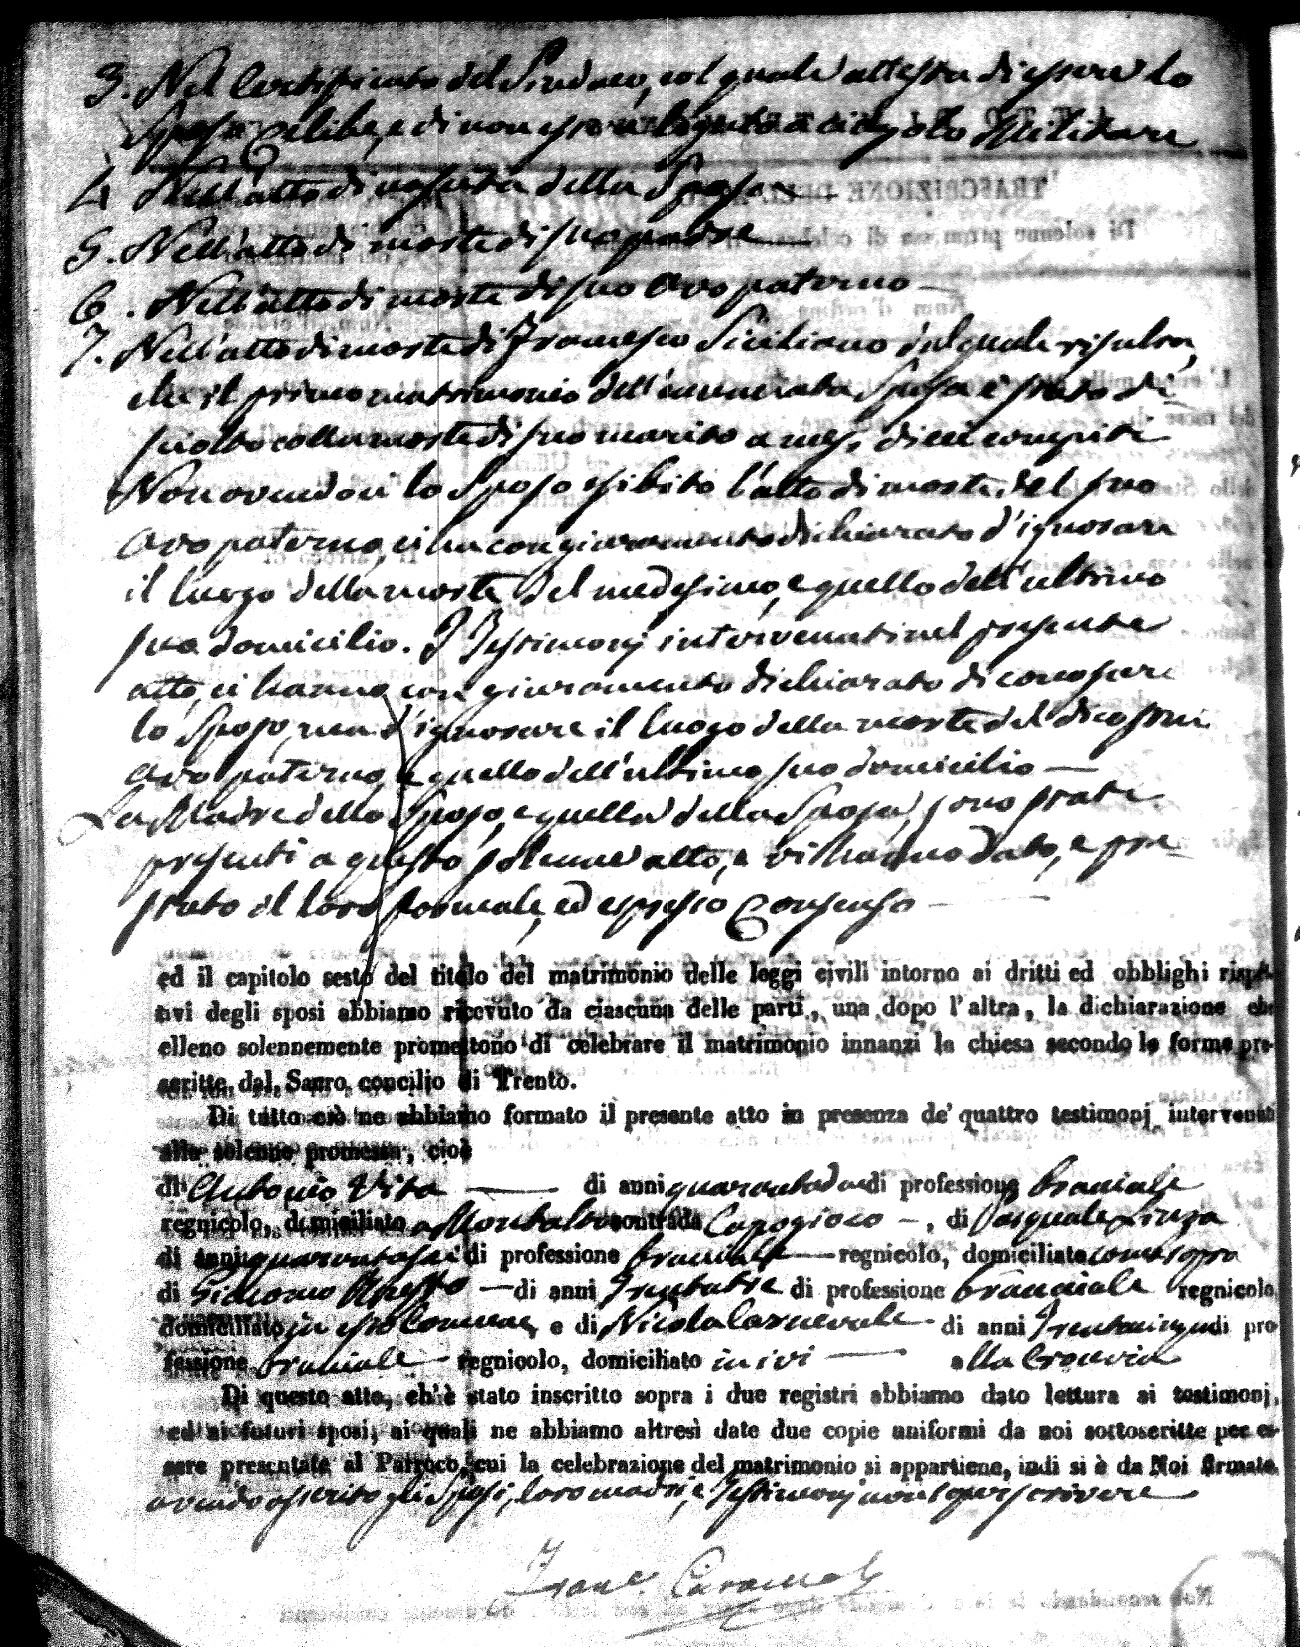 3. Nel Certificato del Sindaco, col quale attesta di essere lo
Sposo Celibe, e di non essere legato a cingolo Militare
4. Nell'atto di nascita della Sposa
5. Nell'atto di morte di suo padre
6. Nell'atto di morte di suo Avo paterno
7. Nell'atto di morte di Francesco Siciliano dal quale risulta,
che il primo matrimonio dell'enunciata Sposa è stato di
sciolto colla morte di suo marito a mesi dieci compiti
Non avendoci lo Sposo esibito l'atto di morte del suo
Avo paterno, ci ha con giuramento dichiarato d'ignorare
il luogo della morte del medesimo, e quello dell'ultimo
suo domicilio. I Testimonj intervenuti nel presente
atto, ci hanno con giuramento dichiarato di conoscere
lo Sposo, ma d'ignorare il luogo della morte del di costui
Avo paterno, e quello dell'ultimo suo domicilio
La Madre dello Sposo, e quella della Sposa, sono state
presenti a questo solenne atto, e vi hanno dato, e pre-
stato il loro formale, ed espresso Consenso
ed il capitolo sesto del titolo del matrimonio delle leggi civili intorno ai dritti ed obblighi rispet-
tivi degli sposi abbiamo ricevuto da ciascuna delle parti, una dopo l'altra, la dichiarazione che
elleno solennemente promettono di celebrare il matrimonio innanzi la chiesa secondo le forme pre-
scritte dal Sacro concilio di Trento.
Di tutto ciò ne abbiamo formato il presente atto in presenza de' quattro testimonj intervenuti
alla solenne promessa, cioè
di Antonio Vita di anni quarantadue di professione bracciale
regnicolo, domiciliato a Montalto contrada Capogioco, di Pasquale
di anni quarantasei di professione bracciale regnicolo, domiciliato come sopra
di Giacomo di anni Trentatre di professione bracciale regnicolo
domiciliato in esso Comune, e di Nicola Carnevale di anni Trentacinque di pro
fessione bracciale regnicolo, domiciliato in ivi alla
Di questo atto, ch'è stato inscritto sopra i due registri abbiamo dato lettura ai testimonj,
ed ai futuri sposi, ai quali ne abbiamo altresì date due copie uniformi da noi sottoscritte per es-
sere presentate al Parroco, cui la celebrazione del matrimonio si appartiene, indi si è da Noi firmato,
avendo asserito gli Sposi, loro madri, e Testimonj non saper scrivere